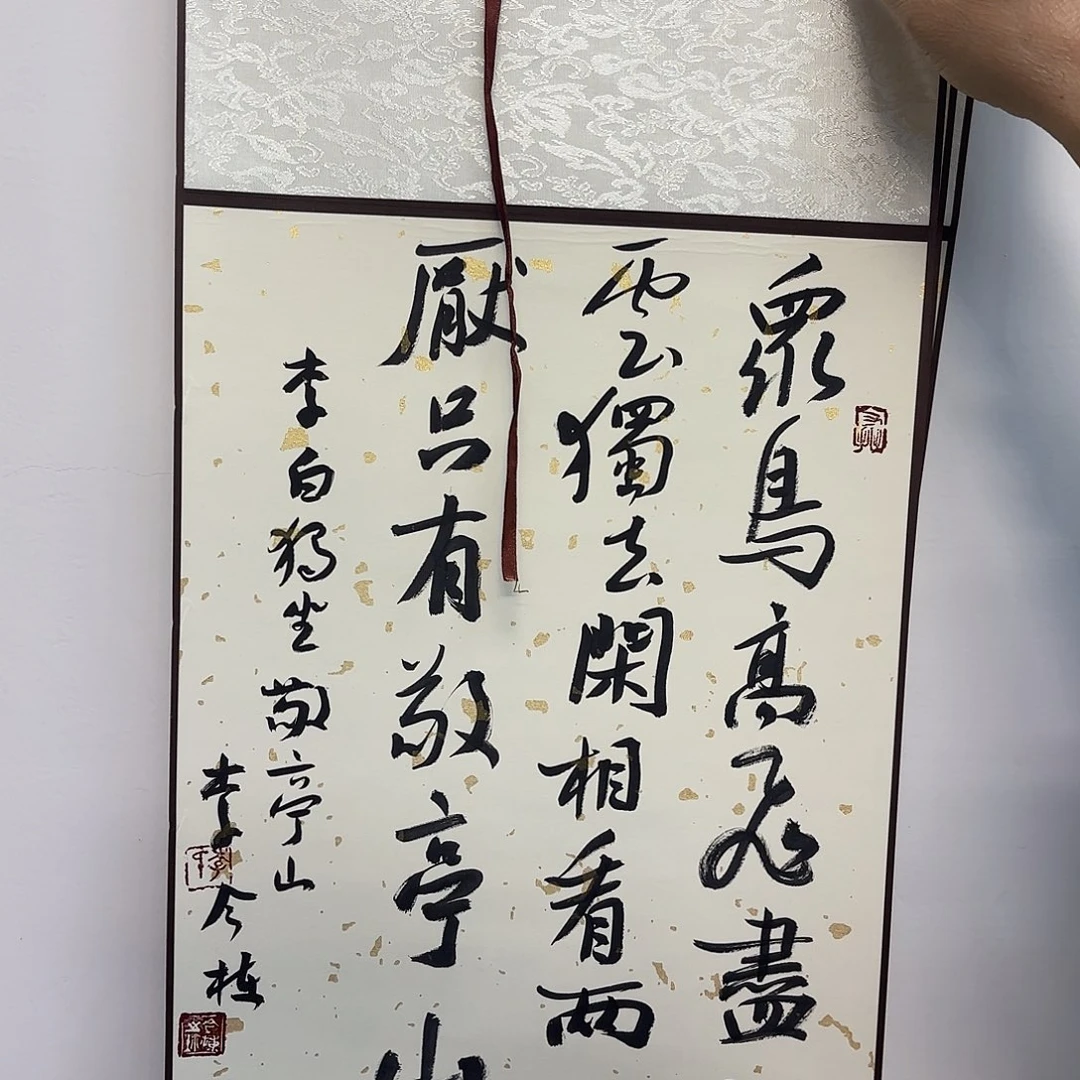 眾鳥高飛盡
雲獨去閑相看兩
厭只有敬亭山
李白獨坐敬亭山
李令